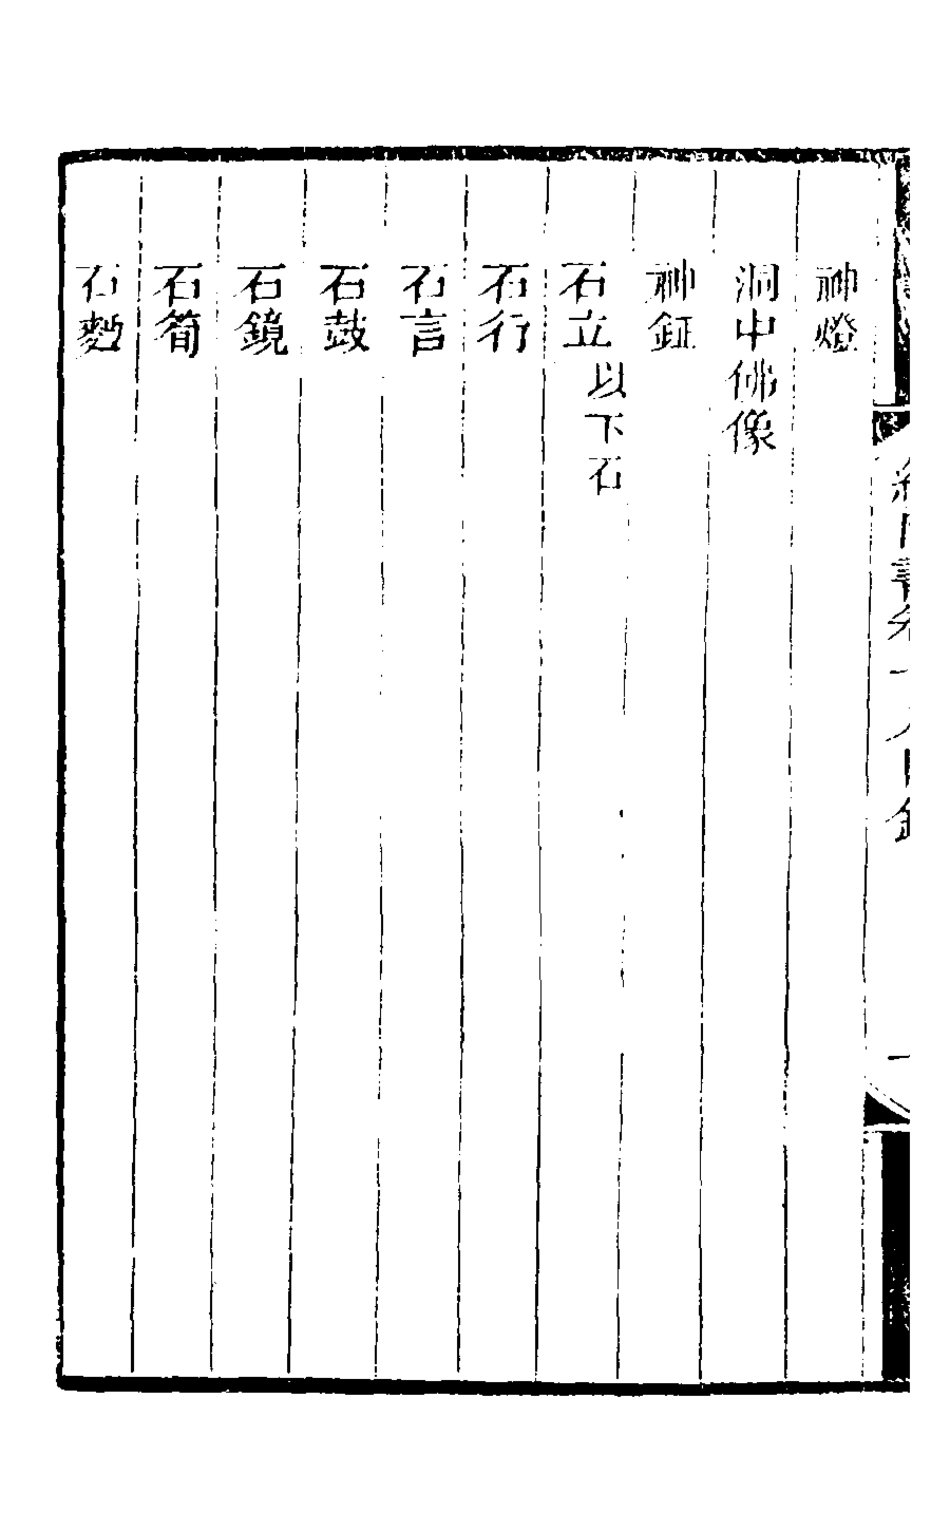 神燈
洞中佛像
神鉦
石立以下石
石行
石言
石鼓
石鏡
石筍
石麪